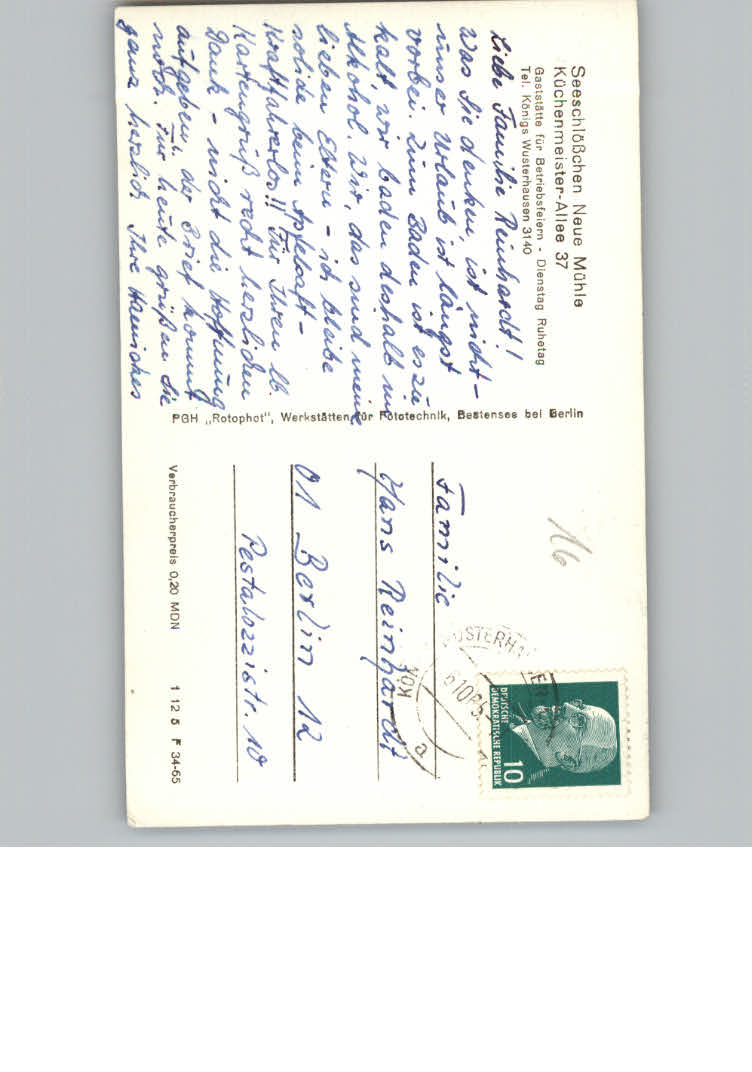 Seeschlößchen Neue Mühle
Küchenmeister-Allee 37
Gaststätte für Betriebsfeiern - Dienstag Ruhetag
Tel. Königs Wusterhausen 3140
Liebe Familie Reinhardt!
Was Sie denken, ist nicht -
unser Urlaub ist längst
vorbei. Zum Baden ist es zu
kalt, wir baden deshalb in
Alkohol. Wir, das sind meine
lieben Eltern - ich bleibe
solide beim Apfelsaft -
Kraftfahrerlos!! Für Ihren lb.
Kartengruß recht herzlichen
Dank - nicht die Hoffnung
aufgeben, der Brief kommt
noch. Für heute grüßen Sie
ganz herzlich Ihre
PGH „Rotophot", Werkstätten für Fototechnik, Bestensee bei Berlin
16
Familie
Hans Reinhardt
01 Berlin 12
Pestalozzistr. 10
DEUTSCHE
DEMOKRATISCHE REPUBLIK
10
a
Verbraucherpreis 0,20 MDN
1 12 5 F 34-65